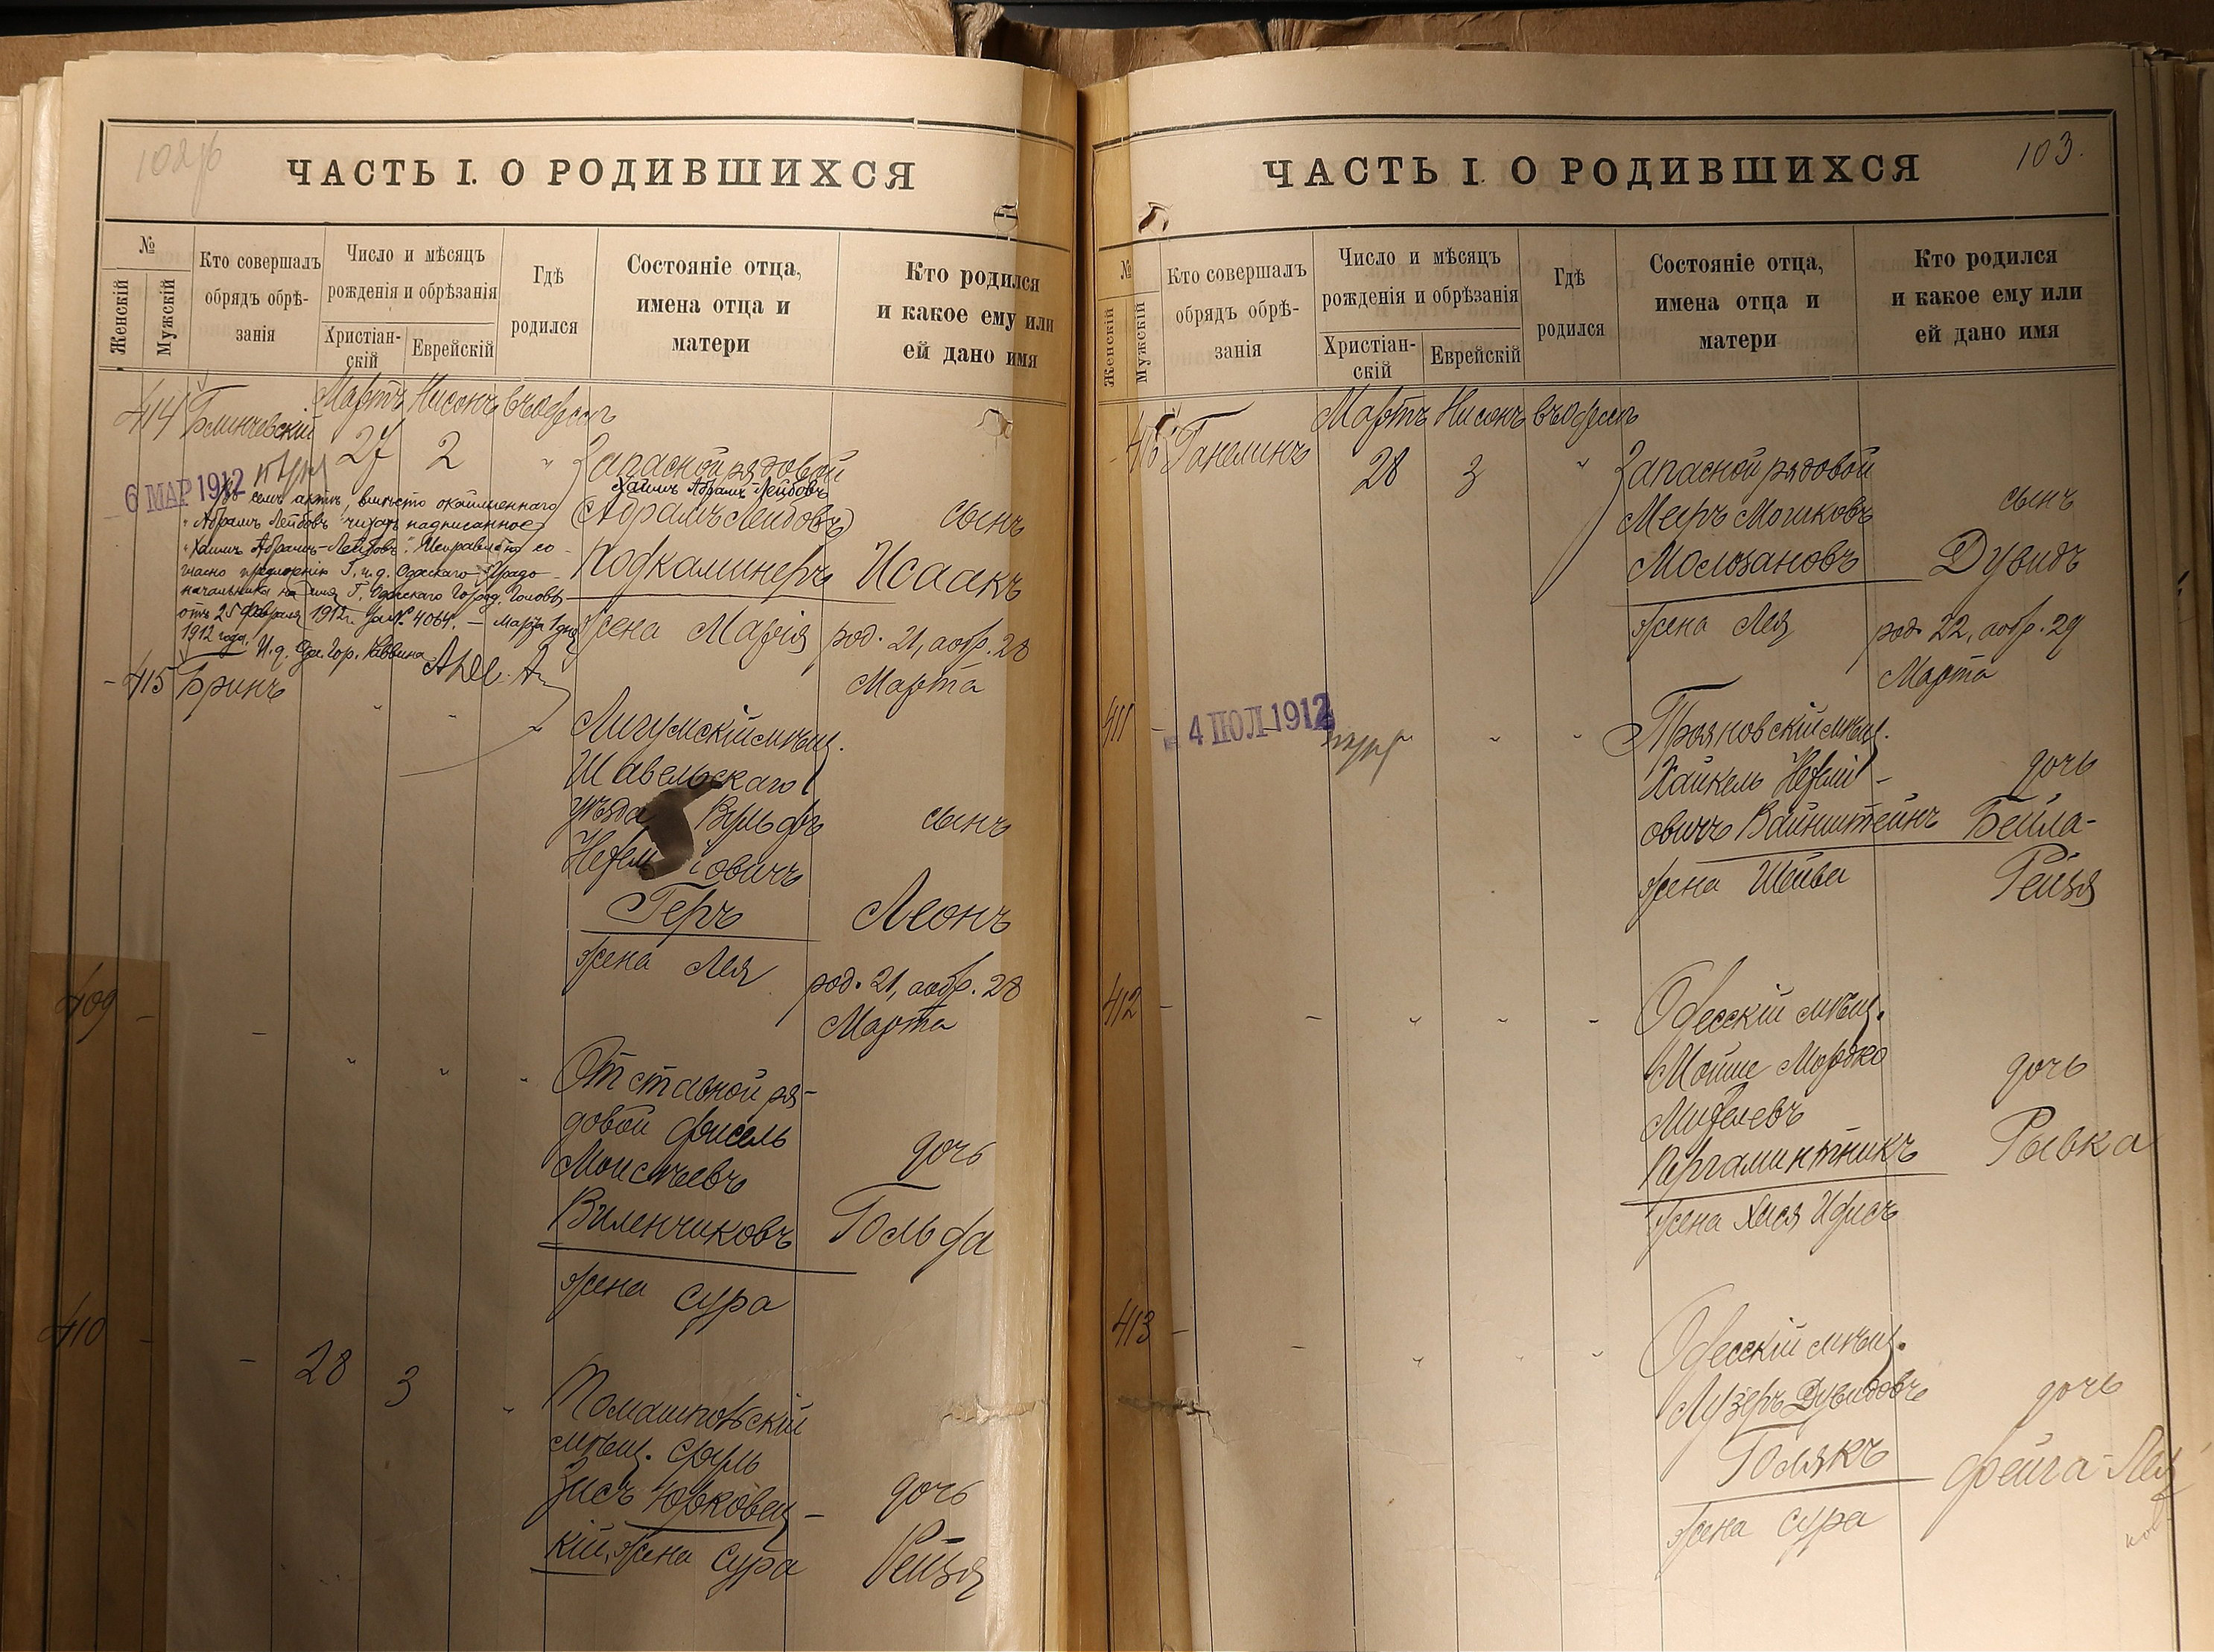 102 об
ЧАСТЬ I. О РОДИВШИХСЯ
№
Женскій
Мужскій
Кто совершалъ
обрядъ обрѣ-
занія
Число и мѣсяцъ
рожденія и обрѣзанія
Христіан-
скій
Еврейскій
Гдѣ
родился
Состояніе отца,
имена отца и
матери
Кто родился
и какое ему или
ей дано имя
Мартъ Нисонъ въ Одессѣ
414
27 2 "
6 МАР 1912
Запасной рядовой
Хаимъ Абрамъ-Лейбовъ
(Абрамъ Лейбовъ)
Подкаминеръ
жена Марія
сынъ
Исаакъ
род. 21, а обр. 28
Марта
Въ семъ актѣ, вмѣсто окаймленнаго
"Абрамъ Лейбовъ" читать надписанное
"Хаимъ Абрамъ-Лейбовъ". Исправлено со-
гласно предложенію Г. и. д. Одесскаго Градо-
начальника на имя Г. Одесскаго Город. Головы
отъ 25 Февраля 1912 г. за № 4064. — Марта 1 дня
1912 года. И. д. Од. Гор. Раввина
415 Бринъ " "
Лигумскій мѣщ.
Шавельскаго
уѣзда Вульфъ
Нефел іовичъ
Геръ
жена Лея
сынъ
Леонъ
род. 21, а обр. 28
Марта
409 - - " " "
Отставной ря-
довой Фисель
Моисѣевъ
Виленчиковъ
жена Сура
дочь
Гольда
410 - - 28 3 "
мѣщ. Сруль
Зисъ Юрковец-
кій, жена Сура
дочь
Рейзя
103.
ЧАСТЬ I. О РОДИВШИХСЯ
№
Женскій
Мужскій
Кто совершалъ
обрядъ обрѣ-
занія
Число и мѣсяцъ
рожденія и обрѣзанія
Христіан-
скій
Еврейскій
Гдѣ
родился
Состояніе отца,
имена отца и
матери
Кто родился
и какое ему или
ей дано имя
Мартъ Нисонъ въ Одессѣ
416 Ганелинъ 28 3 "
Запасной рядовой
Меиръ Мошковъ
жена Лея
сынъ
Дувидъ
род. 22, а обр. 29
Марта
411 - 4 ИЮЛ 1912 " "
Трояновскій мѣщ.
Хаикель Нефелі-
овичъ Вайнштейнъ
жена Шейва
дочь
Бейла-
Рейзя
412 - - " " -
Одесскій мѣщ.
Мойше Мордко
Пергаминтникъ
жена Хася
дочь
Рывка
413 - - " " "
Одесскій мѣщ.
Лузеръ Дувидовъ
Голякъ
жена Сура
дочь
Фейга-Лея